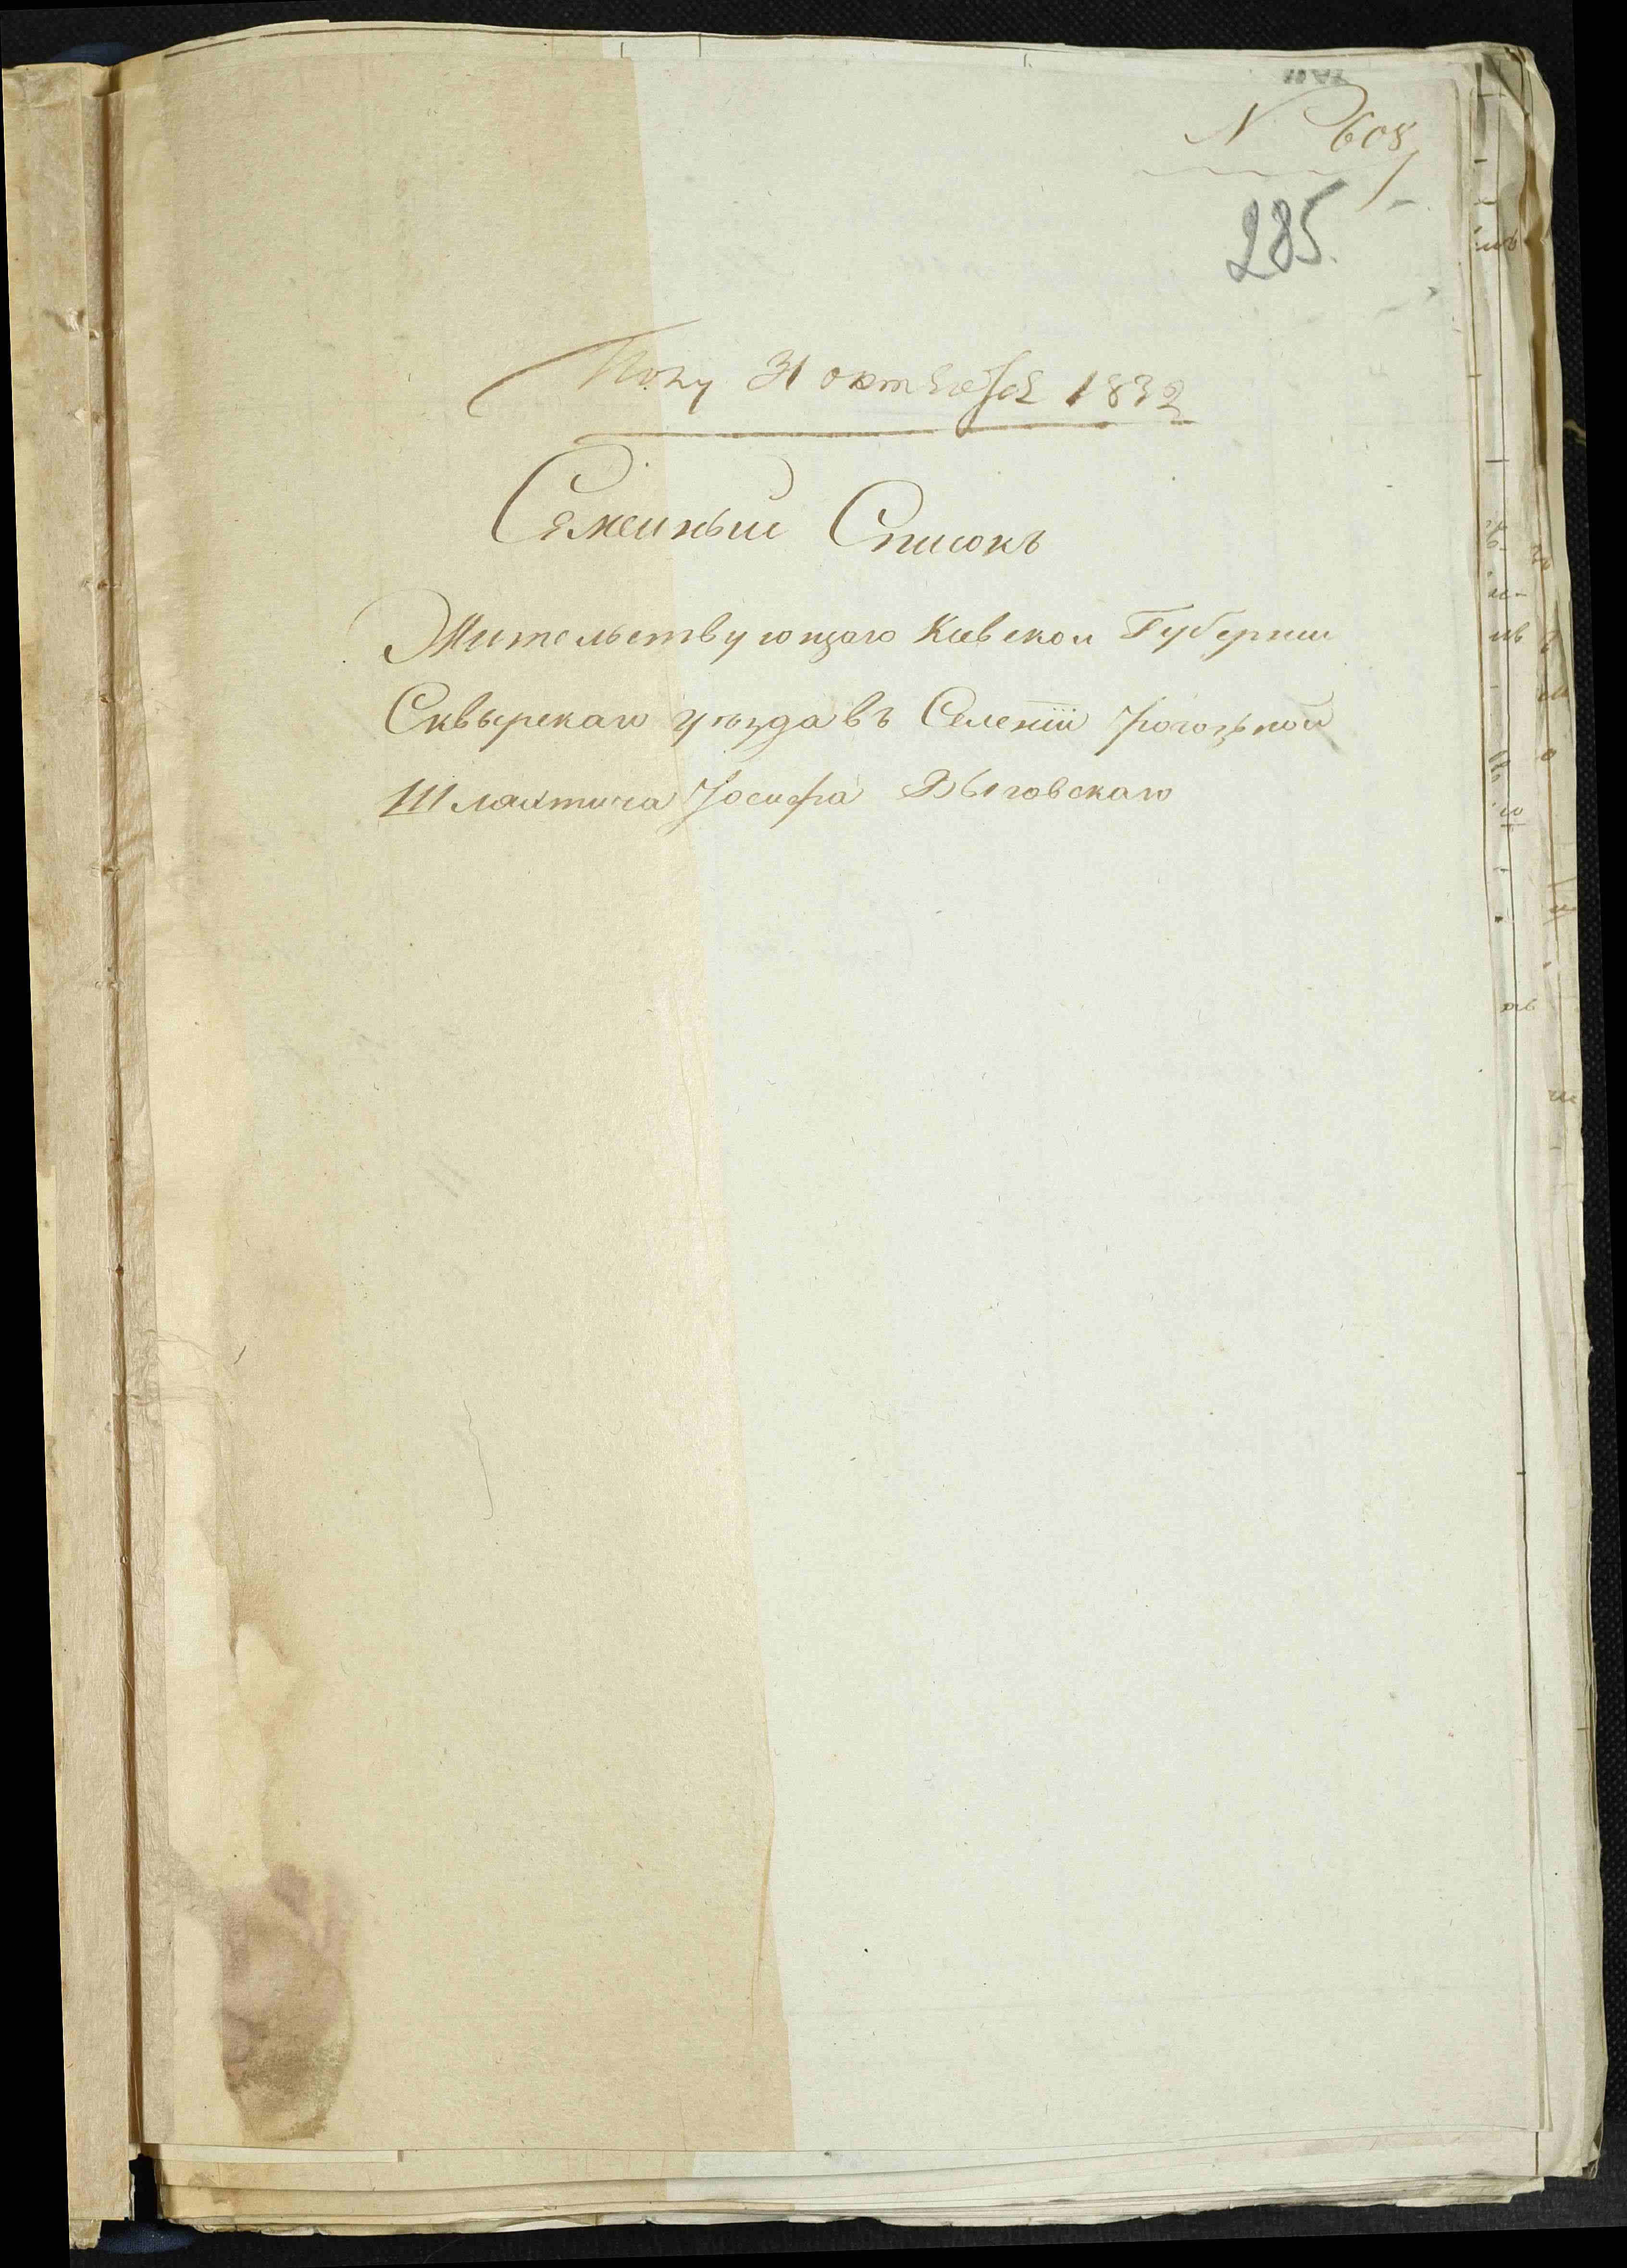 N 608
285.
Полу 31 октября 1832
Семейный Списокъ
Жительствующаго Киевской Губернии
Сквырскаго уѣзда въ Селенїи
Шляхтича Іосифа Выговскаго